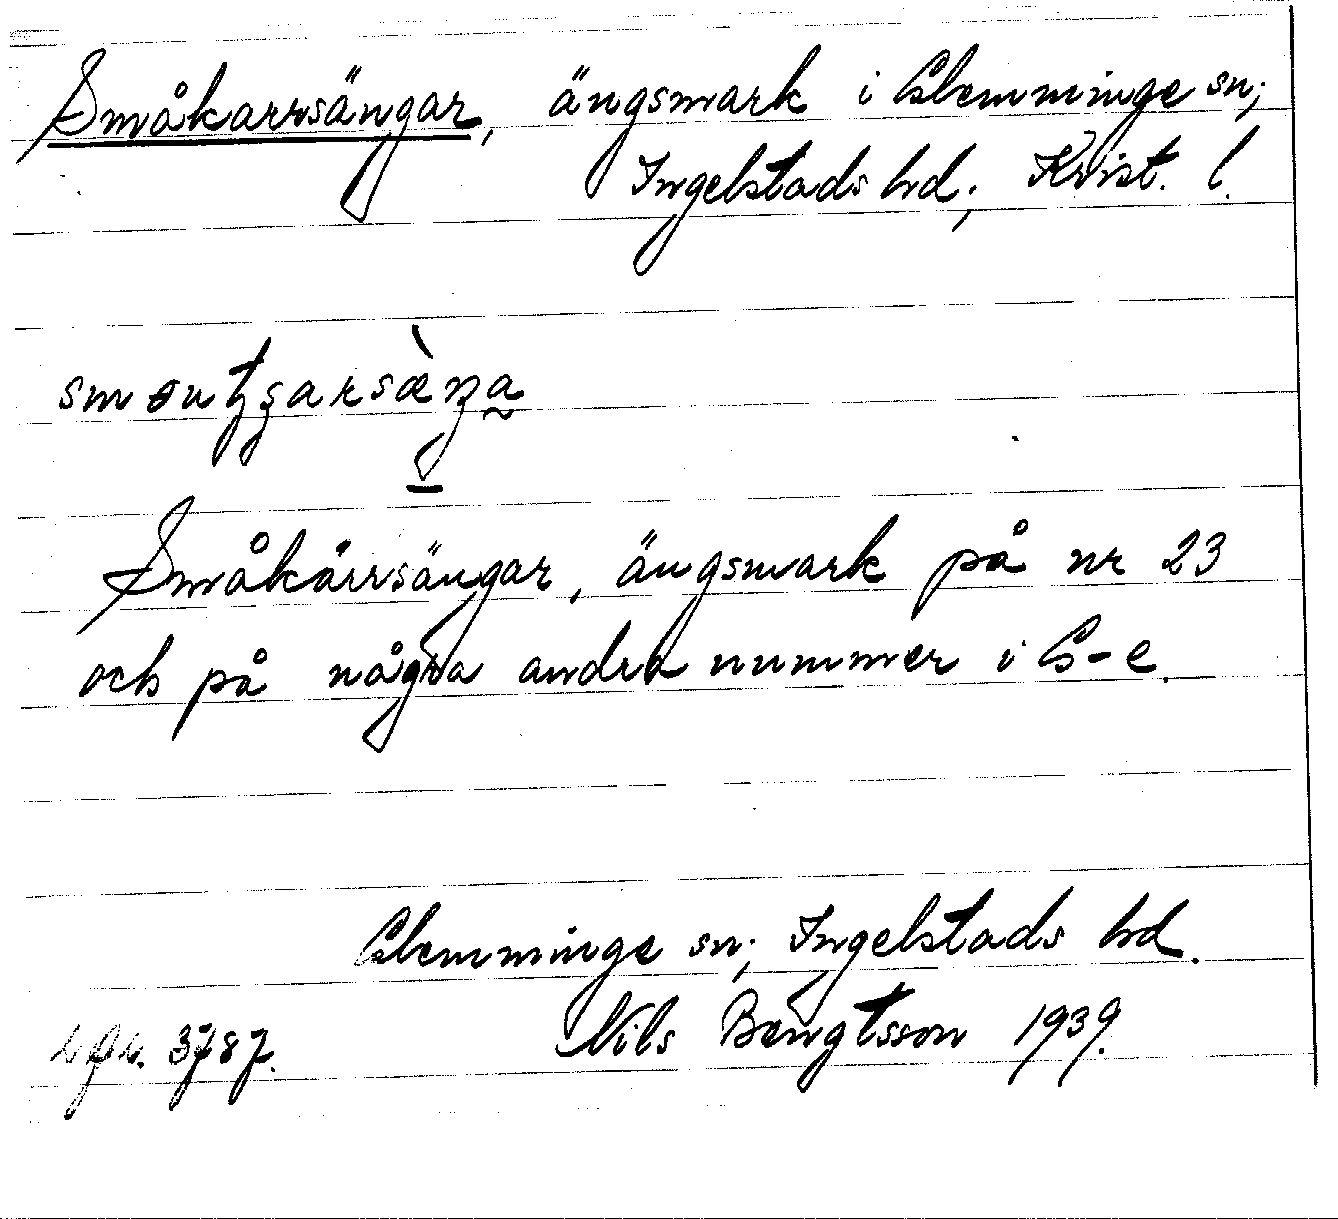 Småkarrsängar, ängsmark i Glemminge sn;
Ingelstads hd; Krist. l.
Småkärrsängar, ängsmark på nr 23
och på några andra nummer i G-e.
Glemminge sn; Ingelstads hd.
Nils Bengtsson 1939.
3787.